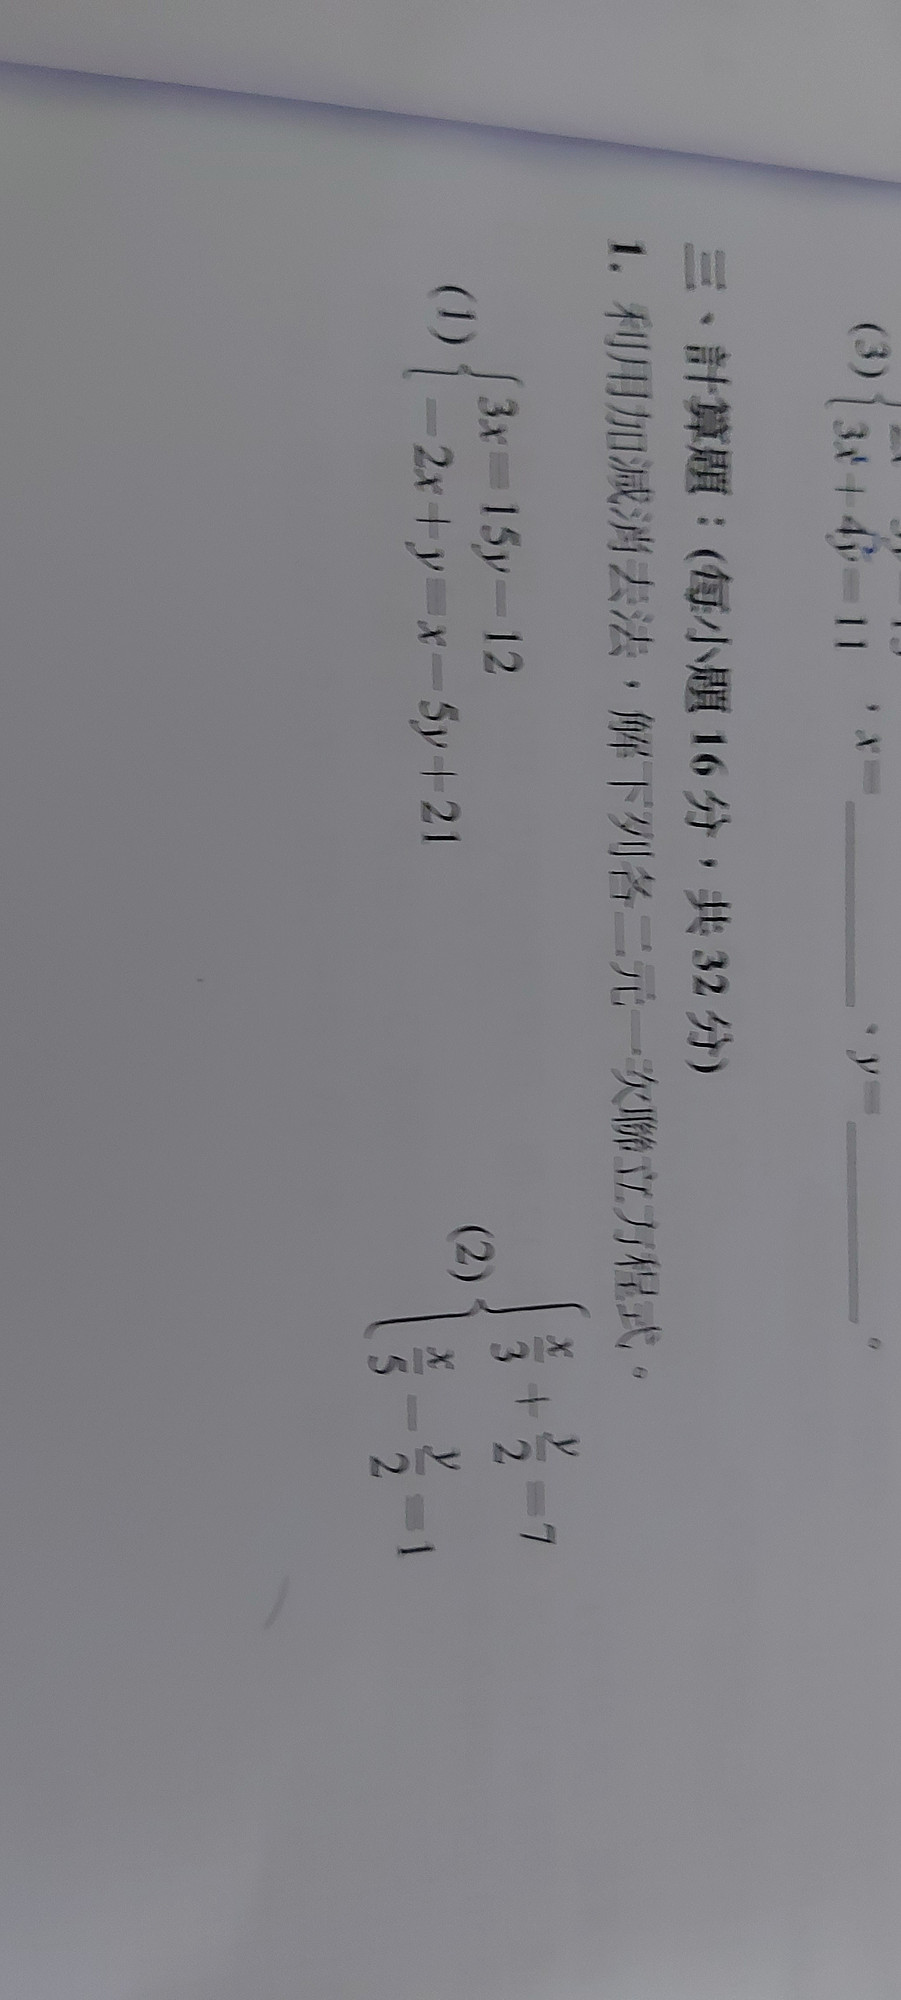 (3) 3x+4y=11 ,x= 、y= 。
三、計算題:(每小題 16 分,共 32 分)
1. 利用加減消去法,解下列各二元一次聯立方程式。
(1) 3x=15y-12
-2x+y=x-5y+21
(2) x/3 + y/2 =7
x/5 - y/2 =1